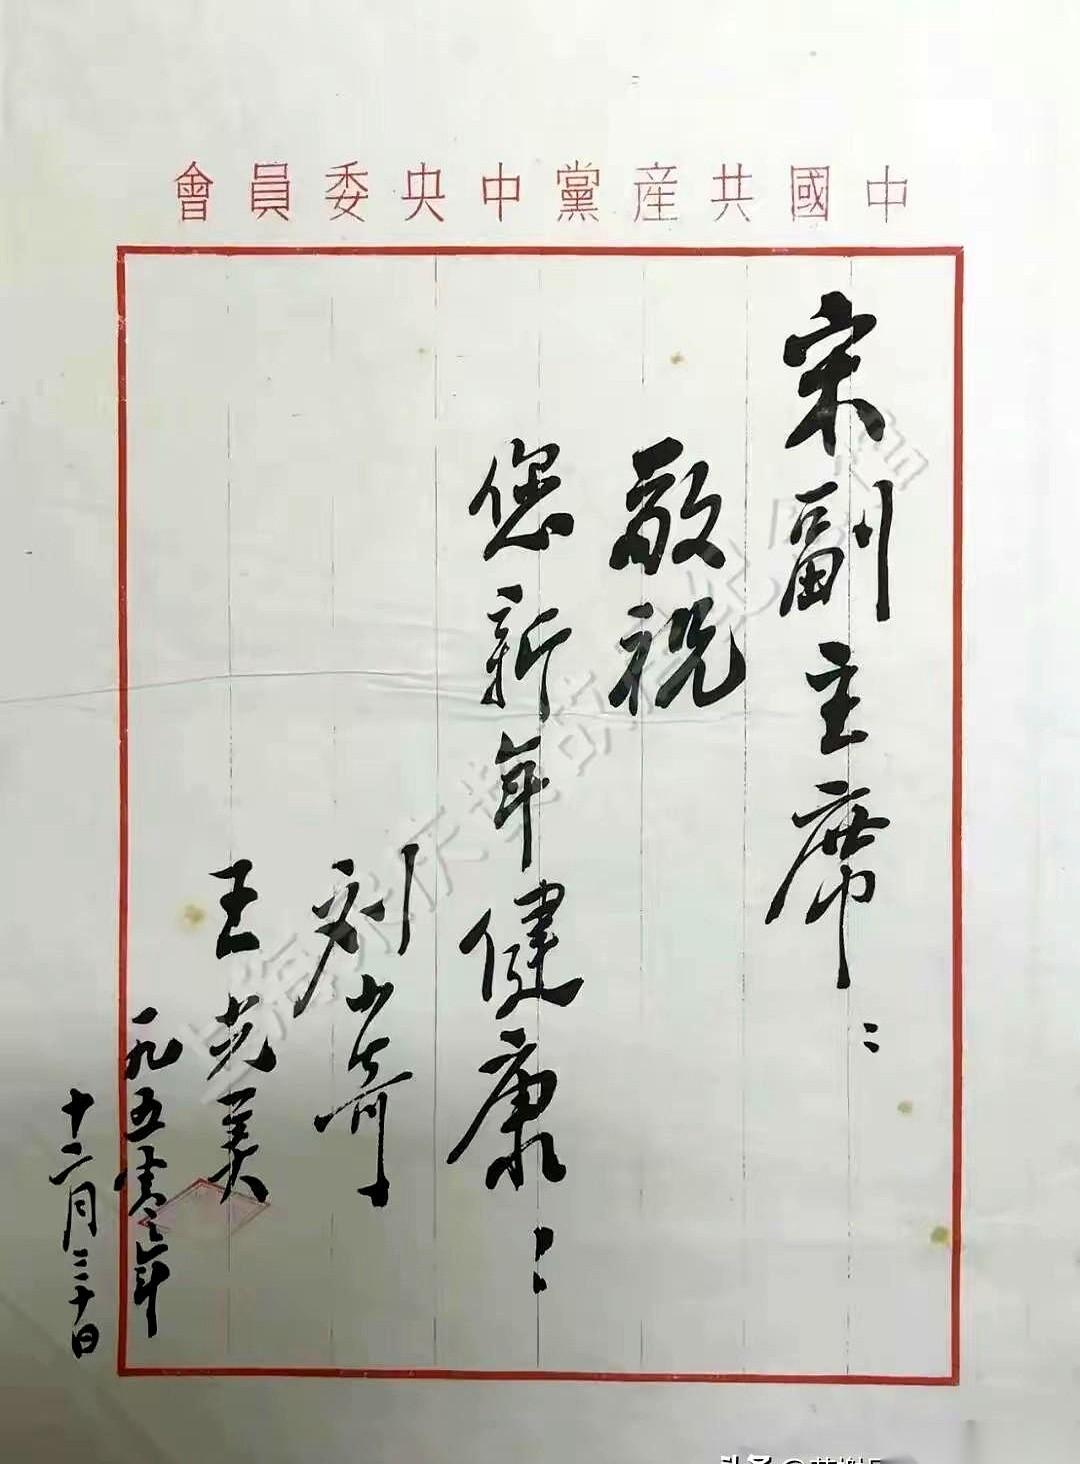 中國共産黨中央委員會
宋副主席：
敬祝
您新年健康！
刘少奇
王光美
一九五零年
十二月三十日